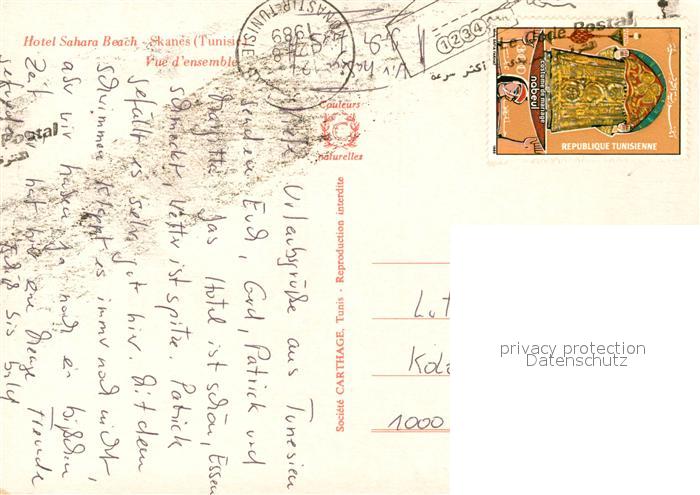 Hotel Sahara Beach - Skanes (Tunisie)
Vue d'ensemble
Couleurs
naturelles
Société CARTHAGE, Tunis - Reproduction interdite
MONASTIR TUNISIE
1989
1234
Le Code Postal
أكثر سرعة
costume de mariage
nabeul
REPUBLIQUE TUNISIENNE
Postal
Viele Urlaubsgrüße aus Tunesien
senden Euch, Gerd, Patrick und
Das Hotel ist schön, Essen
schmeckt, Wetter ist spitze. Patrick
gefällt es sehr gut hier. Mit dem
Schwimmen klappt es immer noch nicht,
aber wir haben ja noch ein bißchen
Zeit. hat hier eine Menge Freunde
gefunden. Tschüß bis bald
Lut
Köl
1000
privacy protection
Datenschutz